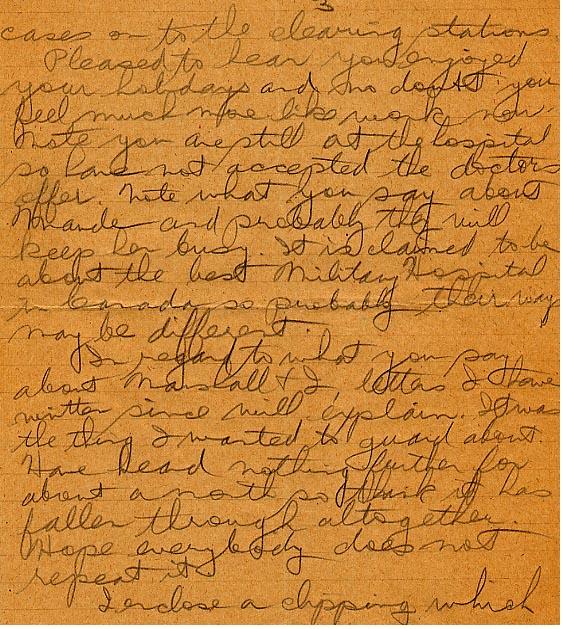 3
cases on to the clearing stations.
Pleased to hear you enjoyed
your holidays and no doubt you
feel much more like work now.
Note you are still at the hospital
so have not accepted the doctors
offer. Note what you say about
Maude and probably they will
keep her busy. It is claimed to be
about the best Military Hospital
in Canada so probably their way
may be different.
In regard to what you say
about Marshall & I, letters I have
written since will explain. It was
the thing I wanted to guard about.
Have heard nothing further for
about a month so think it has
fallen through altogether.
Hope everybody does not
repeat it.
I enclose a clipping which